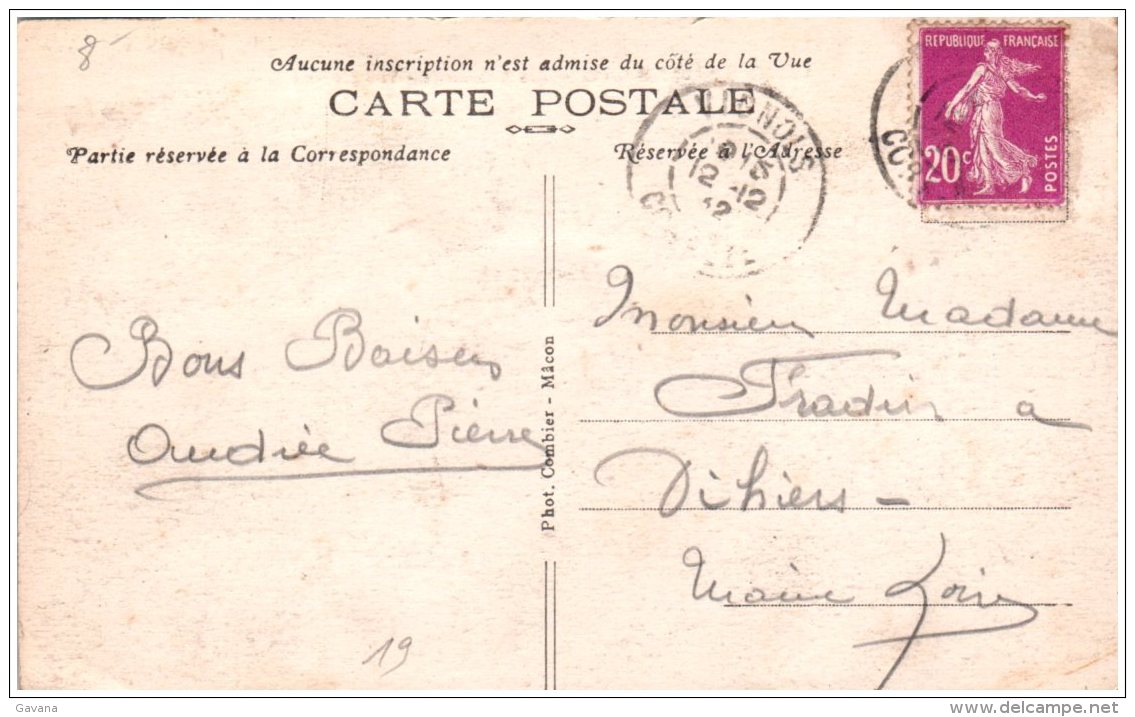 8
Aucune inscription n'est admise du côté de la Vue
CARTE POSTALE
Partie réservée à la Correspondance
Réservée à l'Adresse
REPUBLIQUE FRANÇAISE
20c
POSTES
12 -12
Bons Baisers
Andrée Pierre
Phot. Combier - Mâcon
Monsieur Madame
Fradin a
Vihiers -
Maine Loire
19
Gavana
delcampe.net